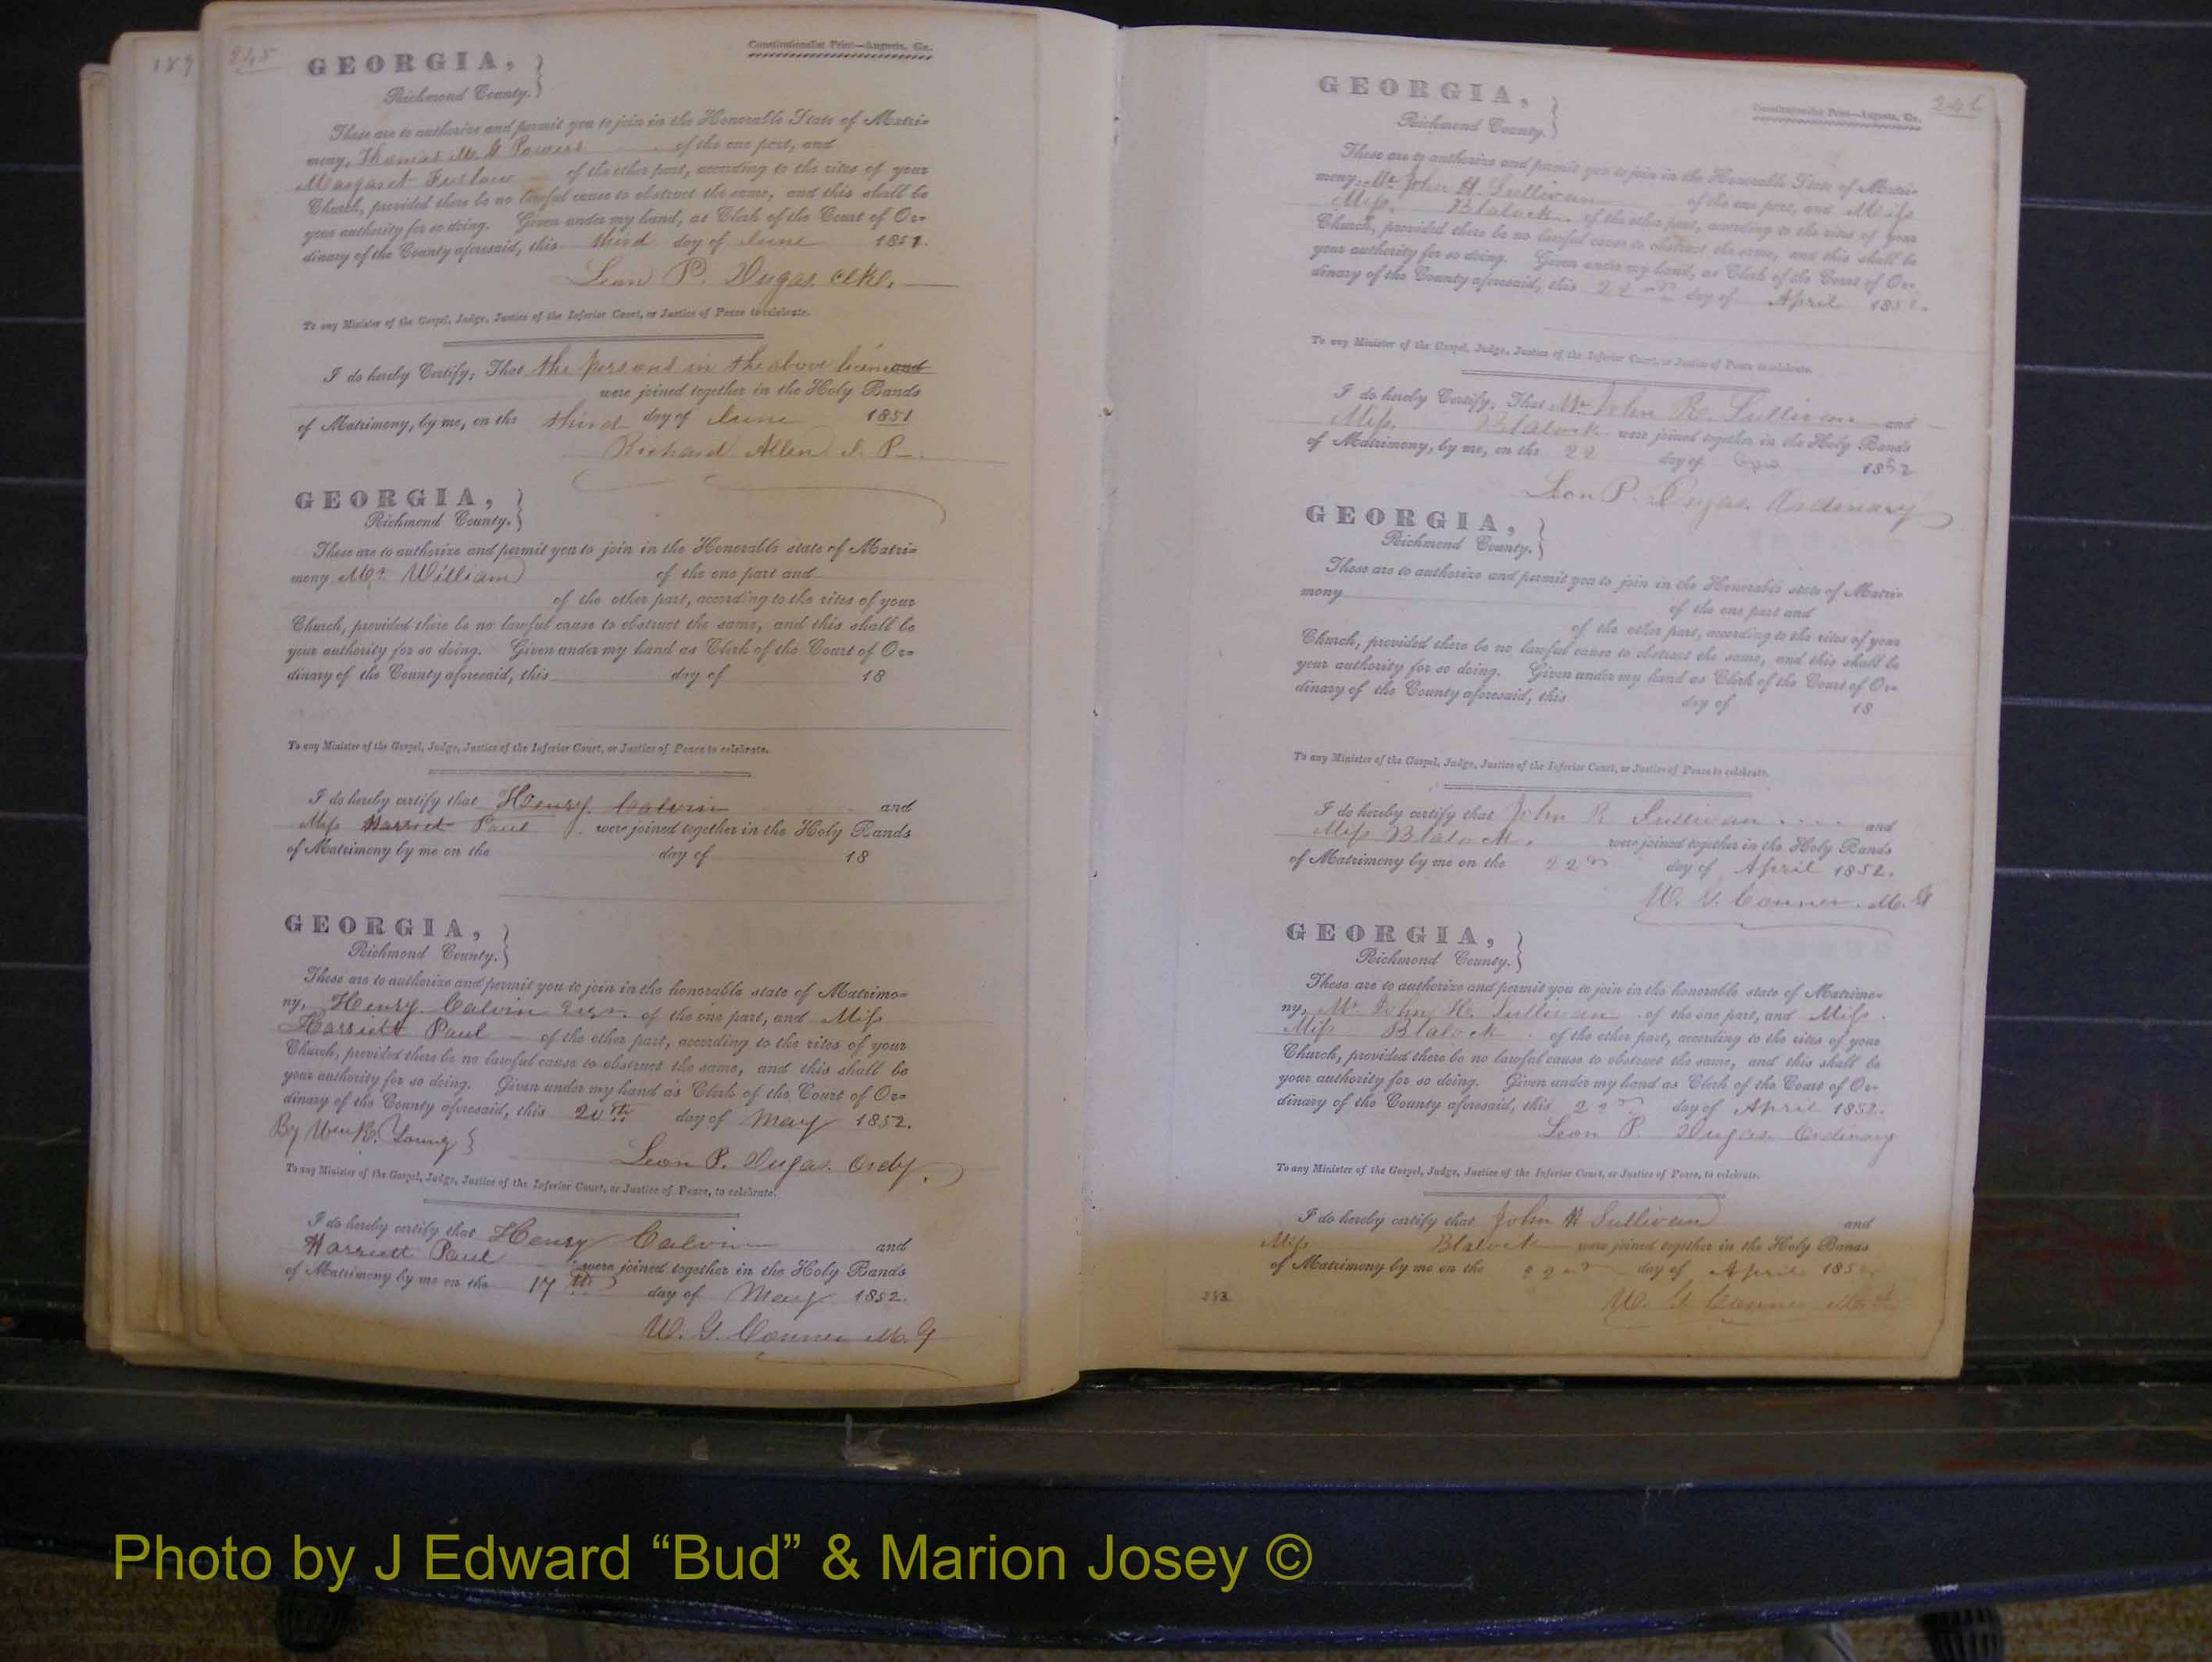 189
245
Constitutionalist Print—Augusta, Ga.
GEORGIA,
Richmond County.
These are to authorize and permit you to join in the Honorable State of Matri-
mony, Thomas M. G Powers of the one part, and
Margaret Furlow of the other part, according to the rites of your
Church, provided there be no lawful cause to obstruct the same, and this shall be
your authority for so doing. Given under my hand, as Clerk of the Court of Or-
dinary of the County aforesaid, this third day of June 1851.
Leon P. Dugas. Clk.
To any Minister of the Gospel, Judge, Justice of the Inferior Court, or Justice of Peace to celebrate.
I do hereby Certify, That the persons in the above and
were joined together in the Holy Bands
of Matrimony, by me, on the third day of June 1851
Richard Allen J. P.
GEORGIA,
Richmond County.
These are to authorize and permit you to join in the Honorable state of Matri-
mony Mr. William of the one part and
of the other part, according to the rites of your
Church, provided there be no lawful cause to obstruct the same, and this shall be
your authority for so doing. Given under my hand as Clerk of the Court of Or-
dinary of the County aforesaid, this day of 18
To any Minister of the Gospel, Judge, Justice of the Inferior Court, or Justice of Peace to celebrate.
I do hereby certify that Henry Calvin and
Miss Harriet Paul were joined together in the Holy Bands
of Matrimony by me on the day of 18
GEORGIA,
Richmond County.
These are to authorize and permit you to join in the honorable state of Matrimo-
ny, Henry Calvin Esqr. of the one part, and Miss
Harriett Paul of the other part, according to the rites of your
Church, provided there be no lawful cause to obstruct the same, and this shall be
your authority for so doing. Given under my hand as Clerk of the Court of Or-
dinary of the County aforesaid, this 20th day of May 1852.
By Wm R. Young
Leon P. Dugas. Ordy.
To any Minister of the Gospel, Judge, Justice of the Inferior Court, or Justice of Peace, to celebrate.
I do hereby certify that Henry Calvin and
Harriett Paul were joined together in the Holy Bands
of Matrimony by me on the 17th day of May 1852.
W. G. Conner M. G
246
Constitutionalist Print—Augusta, Ga.
GEORGIA,
Richmond County.
These are to authorize and permit you to join in the Honorable State of Matri-
mony, Mr John H. Sullivan of the one part, and Miss
Miss. Blalock. of the other part, according to the rites of your
Church, provided there be no lawful cause to obstruct the same, and this shall be
your authority for so doing. Given under my hand, as Clerk of the Court of Or-
dinary of the County aforesaid, this 22nd day of April 1852.
To any Minister of the Gospel, Judge, Justice of the Inferior Court, or Justice of Peace to celebrate.
I do hereby Certify, That Mr John R. Sullivan and
Miss. Blalock were joined together in the Holy Bands
of Matrimony, by me, on the 22 day of 1852
Leon P. Dugas. Ordinary
GEORGIA,
Richmond County.
These are to authorize and permit you to join in the Honorable state of Matri-
mony of the one part and
of the other part, according to the rites of your
Church, provided there be no lawful cause to obstruct the same, and this shall be
your authority for so doing. Given under my hand as Clerk of the Court of Or-
dinary of the County aforesaid, this day of 18
To any Minister of the Gospel, Judge, Justice of the Inferior Court, or Justice of Peace to celebrate.
I do hereby certify that John R Sullivan and
Miss Blalock. were joined together in the Holy Bands
of Matrimony by me on the 22nd day of April 1852.
W. G. Conner. M. G
GEORGIA,
Richmond County.
These are to authorize and permit you to join in the honorable state of Matrimo-
ny, Mr John R. Sullivan of the one part, and Miss.
Miss Blalock. of the other part, according to the rites of your
Church, provided there be no lawful cause to obstruct the same, and this shall be
your authority for so doing. Given under my hand as Clerk of the Court of Or-
dinary of the County aforesaid, this 22nd day of April 1852.
Leon P. Dugas. Ordinary
To any Minister of the Gospel, Judge, Justice of the Inferior Court, or Justice of Peace, to celebrate.
I do hereby certify that John R Sullivan and
Miss Blalock were joined together in the Holy Bands
of Matrimony by me on the 22nd day of April 185
W. G Conner M. G
Photo by J Edward “Bud” & Marion Josey ©